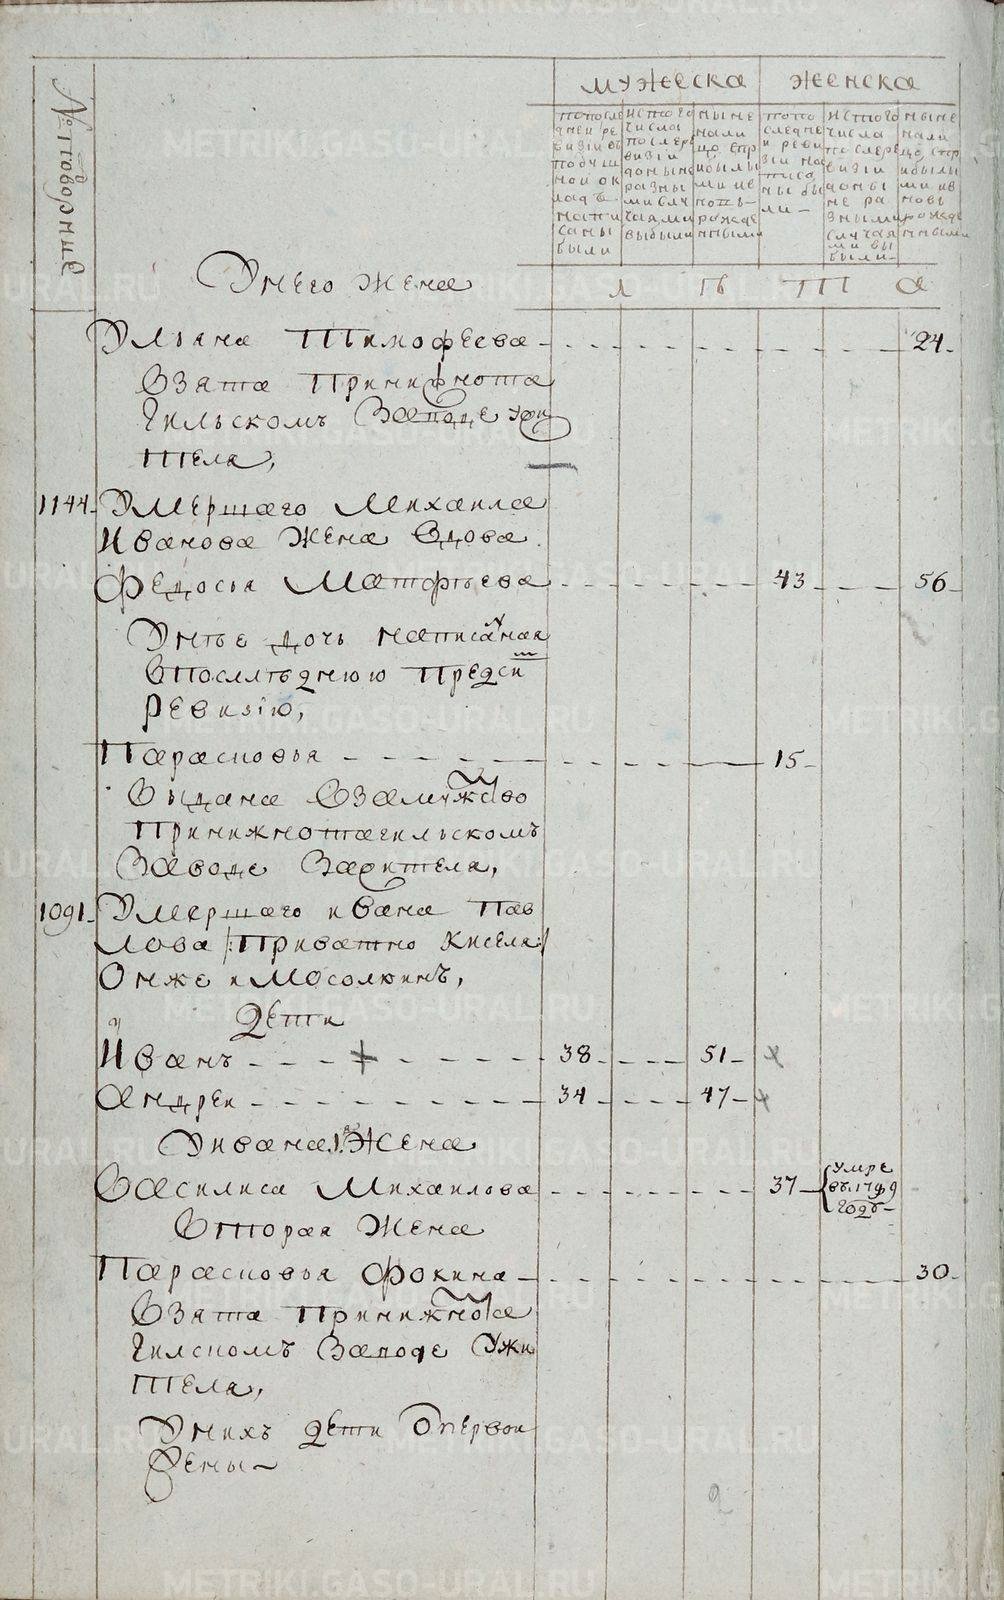 № подворние
мужеска
женска
попосле
днеи ре
визии въ
подуш
ной ок
ладъ
напи
саны
были
изтого
числа
послер
визии
доныне
разны
ми слу
чаями
выбыли
ныне
нали
цо спр
ибылы
ми ив
новь
рожде
нными
попо
следне
и реви
зии на
писа
ны бы
ли
изтого
числа
послере
визии
доны
не ра
зными
случая
ми вы
были
ныне
нали
цо спр
ибылы
ми ив
новь
рожде
нными
Унего жена
Л
ТЬ
ТП
а
Ульяна Тимофеева 24
взята принижнота
гильскомъ Заводе ужи
теля,
1144 Умершаго Михаила
Иванова жена вдова
Федосья Матфѣева 43 56
Унѣе дочь написаная
впослѣднюю предсиї
Ревизїю,
Парасковья 15
выдана взамужство
принижнотагильскомъ
Заводе Зажителя,
1091 Умершаго ивана Пав
лова /:Приватно Киселя:/
Онже и Мосолкинъ,
дети
Иванъ 38 51
андреи 34 47
Уивана 1я Жена
василиса Михаилова 37 умре
въ 1799
годѣ
вторая Жена
Парасковья Фокина 30
взята принижнота
гилскомъ Заводе Ужи
теля,
Унихъ дети отпервои
Жены
2
METRIKI.GASO-URAL.RU